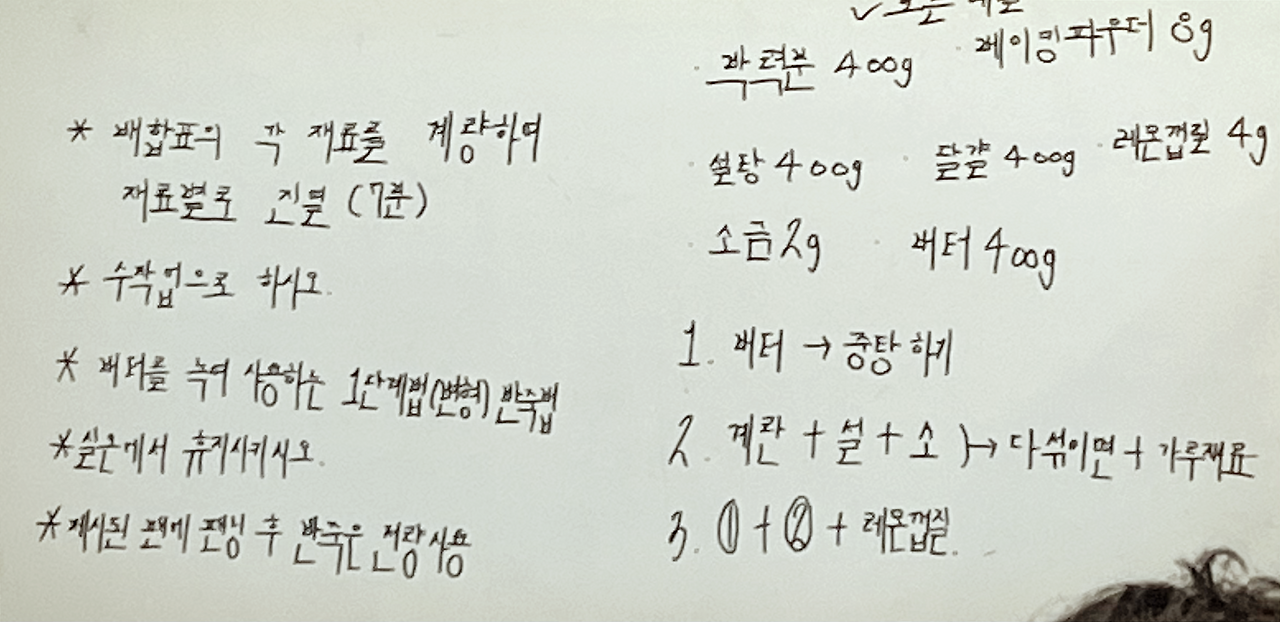 * 배합표의 각 재료를 계량하여
재료별로 진열 (7분)
* 수작업으로 하시오.
* 버터를 녹여 사용하는 1단계법(변형) 반죽법
* 실온에서 휴지시키시오.
* 제시된 팬에 팬닝 후 반죽은 전량사용
· 박력분 400g · 베이킹파우더 8g
· 설탕 400g · 달걀 400g · 레몬껍질 4g
· 소금 2g · 버터 400g
1. 버터 → 중탕하기
2. 계란 + 설 + 소 → 다섞이면 + 가루재료
3. ① + ② + 레몬껍질.